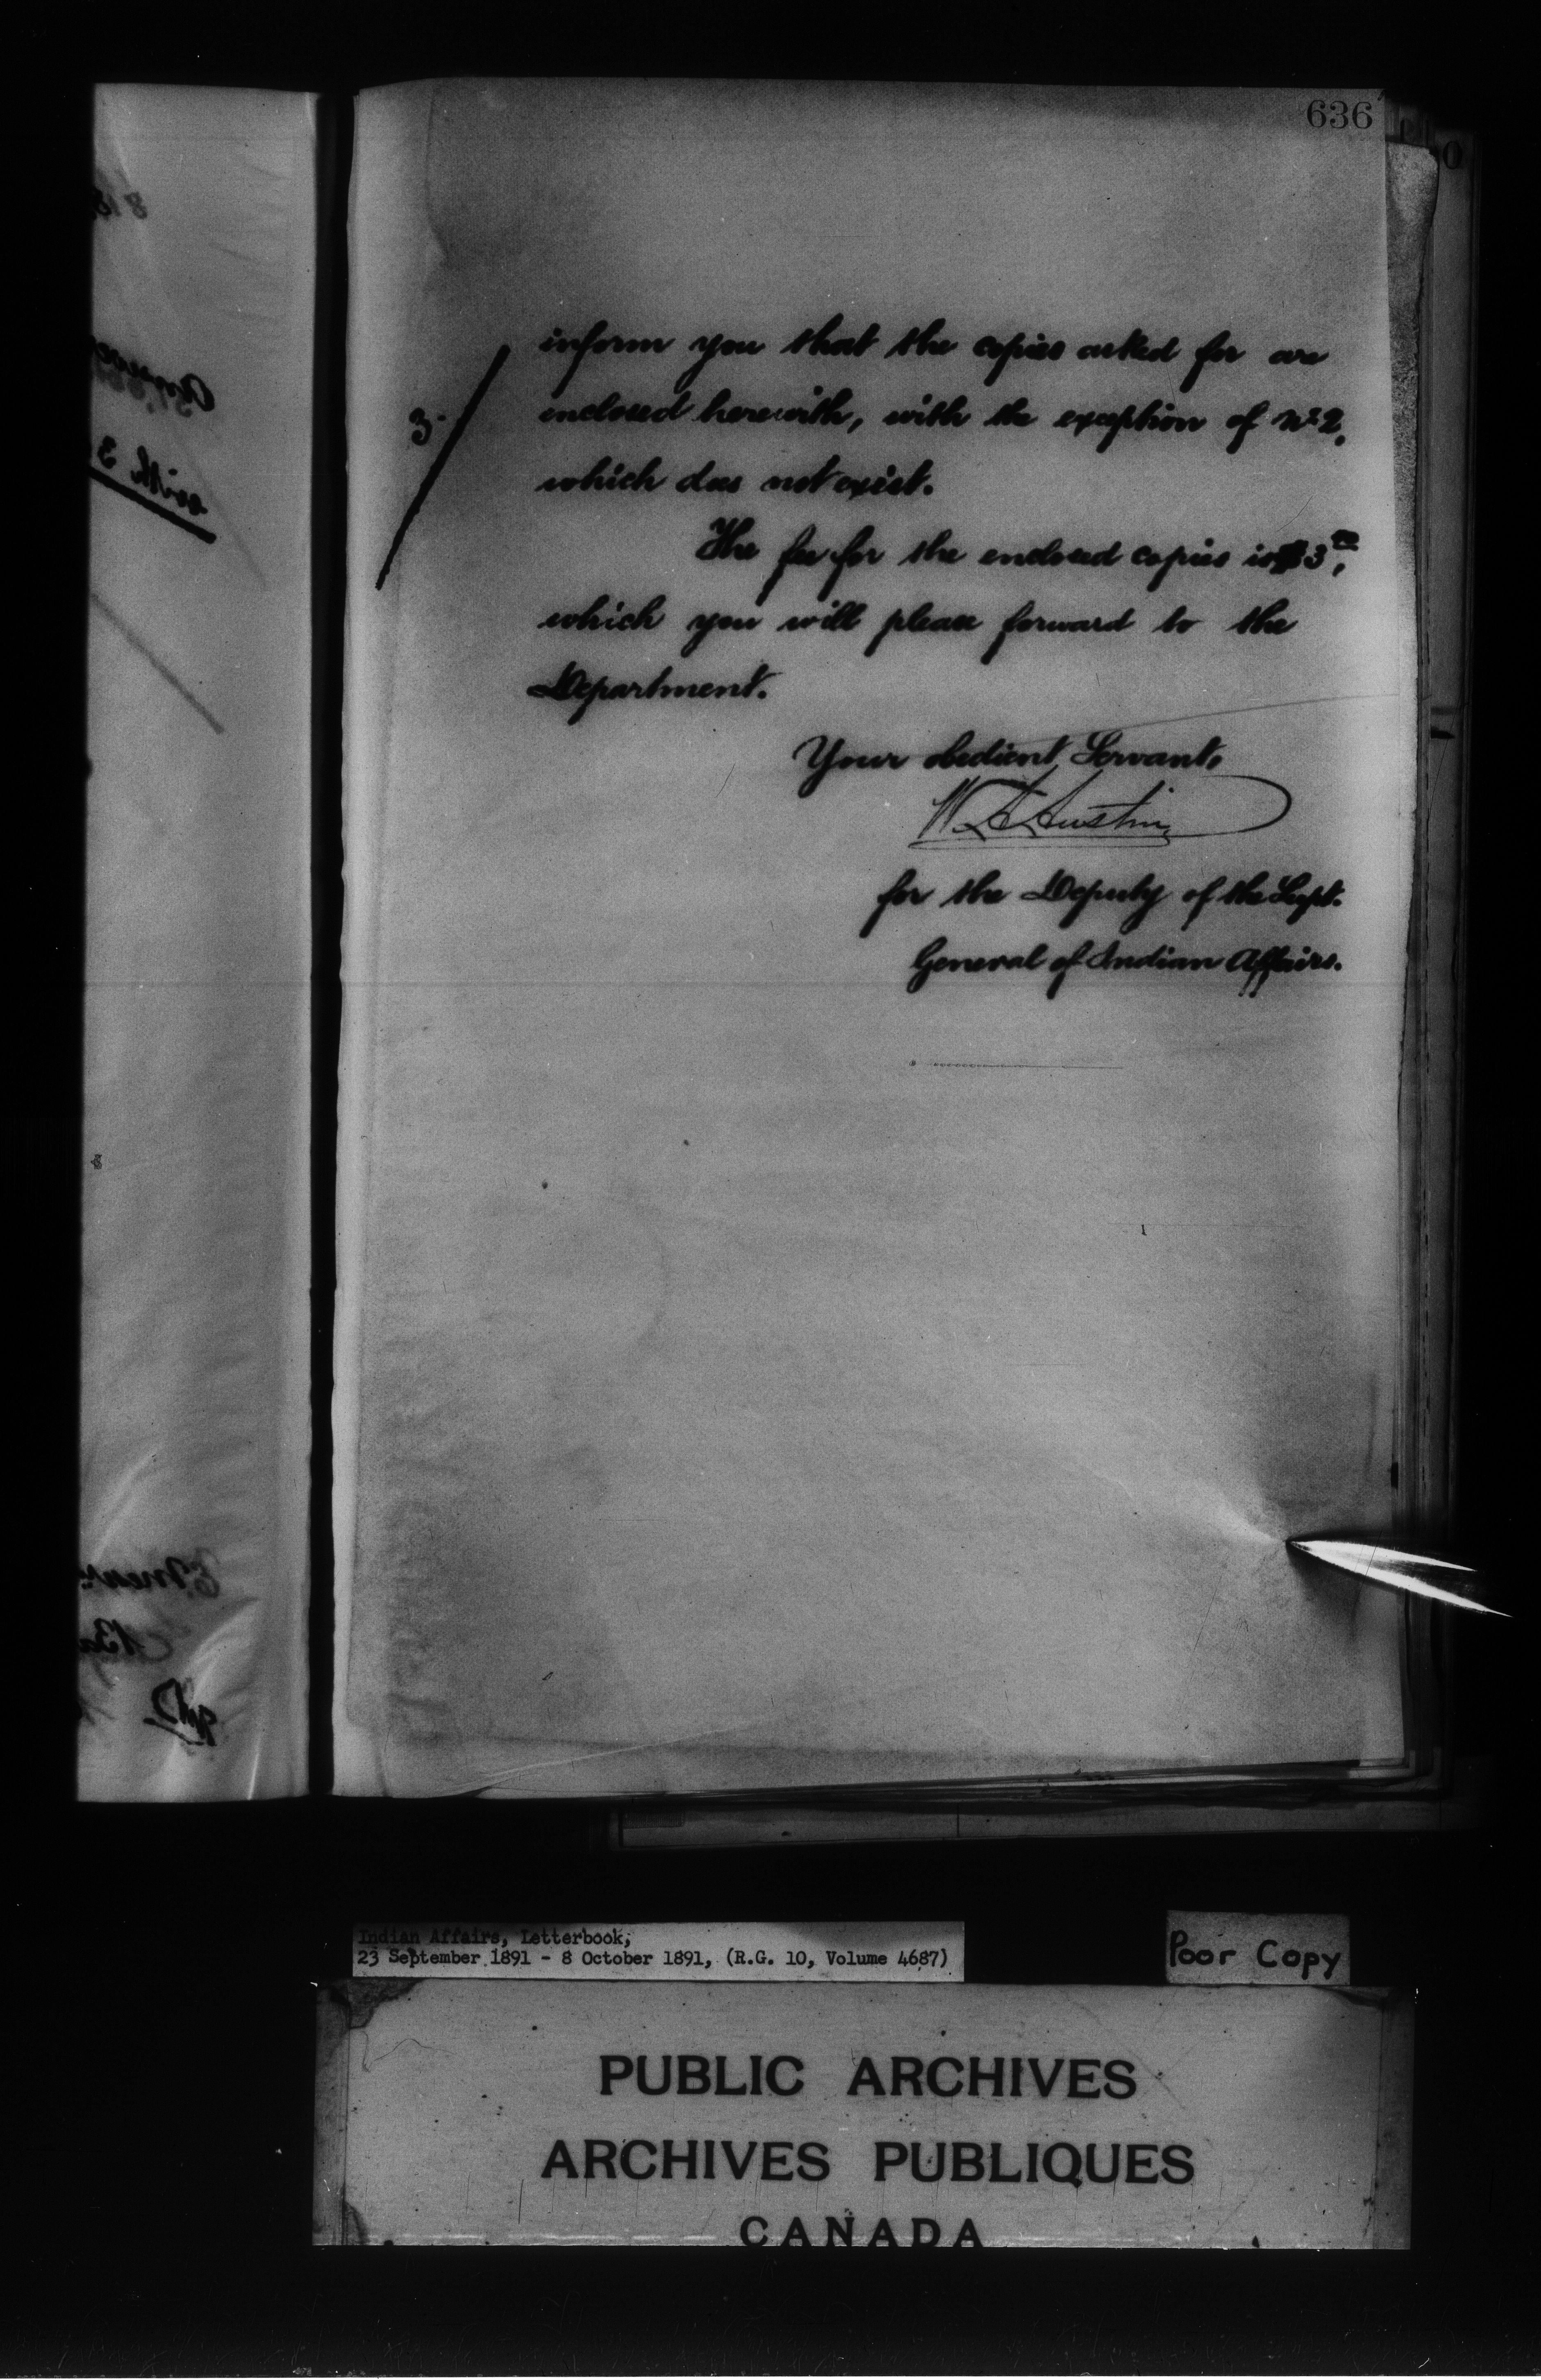 636
inform you that the copies asked for are
3.
enclosed herewith, with the exception of No 2,
which does not exist.
The fee for the enclosed copies is $3 00,
which you will please forward to the
Department.
Your obedient Servant,
W. A. Austin
for the Deputy of the Supt.
General of Indian Affairs.
Indian Affairs, Letterbook,
23 September 1891 - 8 October 1891, (R.G. 10, Volume 4687)
Poor Copy
PUBLIC ARCHIVES
ARCHIVES PUBLIQUES
CANADA